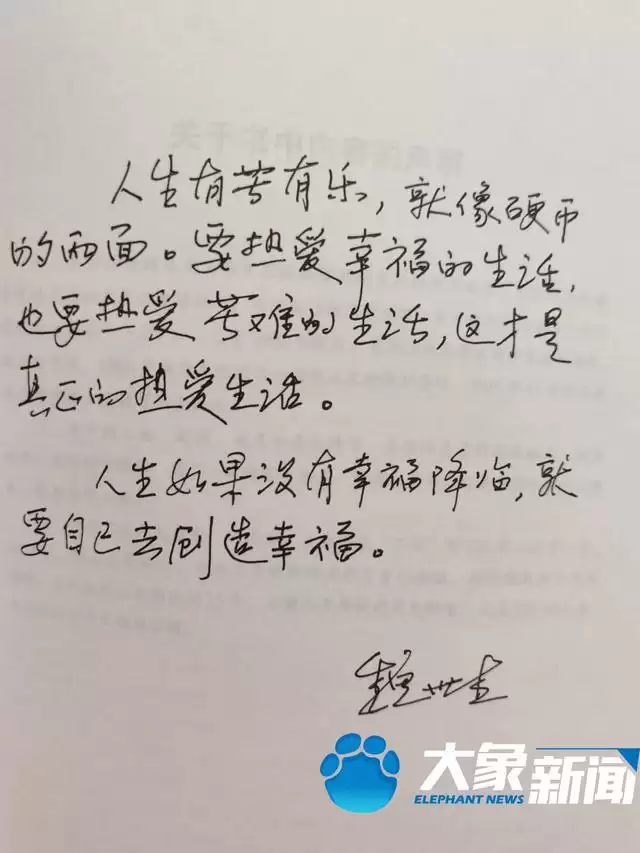 人生有苦有乐，就像硬币
的两面。要热爱幸福的生活，
也要热爱苦难的生活，这才是
真正的热爱生活。
人生如果没有幸福降临，就
要自己去创造幸福。
大象新闻
ELEPHANT NEWS